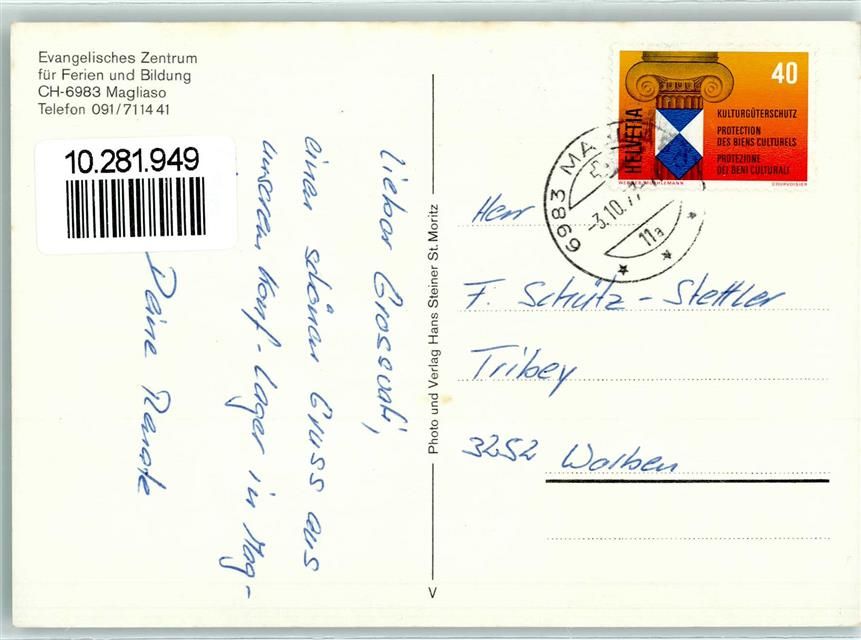 Evangelisches Zentrum
für Ferien und Bildung
CH-6983 Magliaso
Telefon 091/71 14 41
10.281.949
Lieber Grossvati,
einen schönen Gruss aus
unserem Konf-Lager in Mag-
Deine Renate
Photo und Verlag Hans Steiner St. Moritz
V
40
HELVETIA
KULTURGÜTERSCHUTZ
PROTECTION
DES BIENS CULTURELS
PROTEZIONE
DEI BENI CULTURALI
COURVOISIER
6983 MA
-3.10.77
11a
Herr
F. Schütz-Stettler
Tribey
3252 Worben